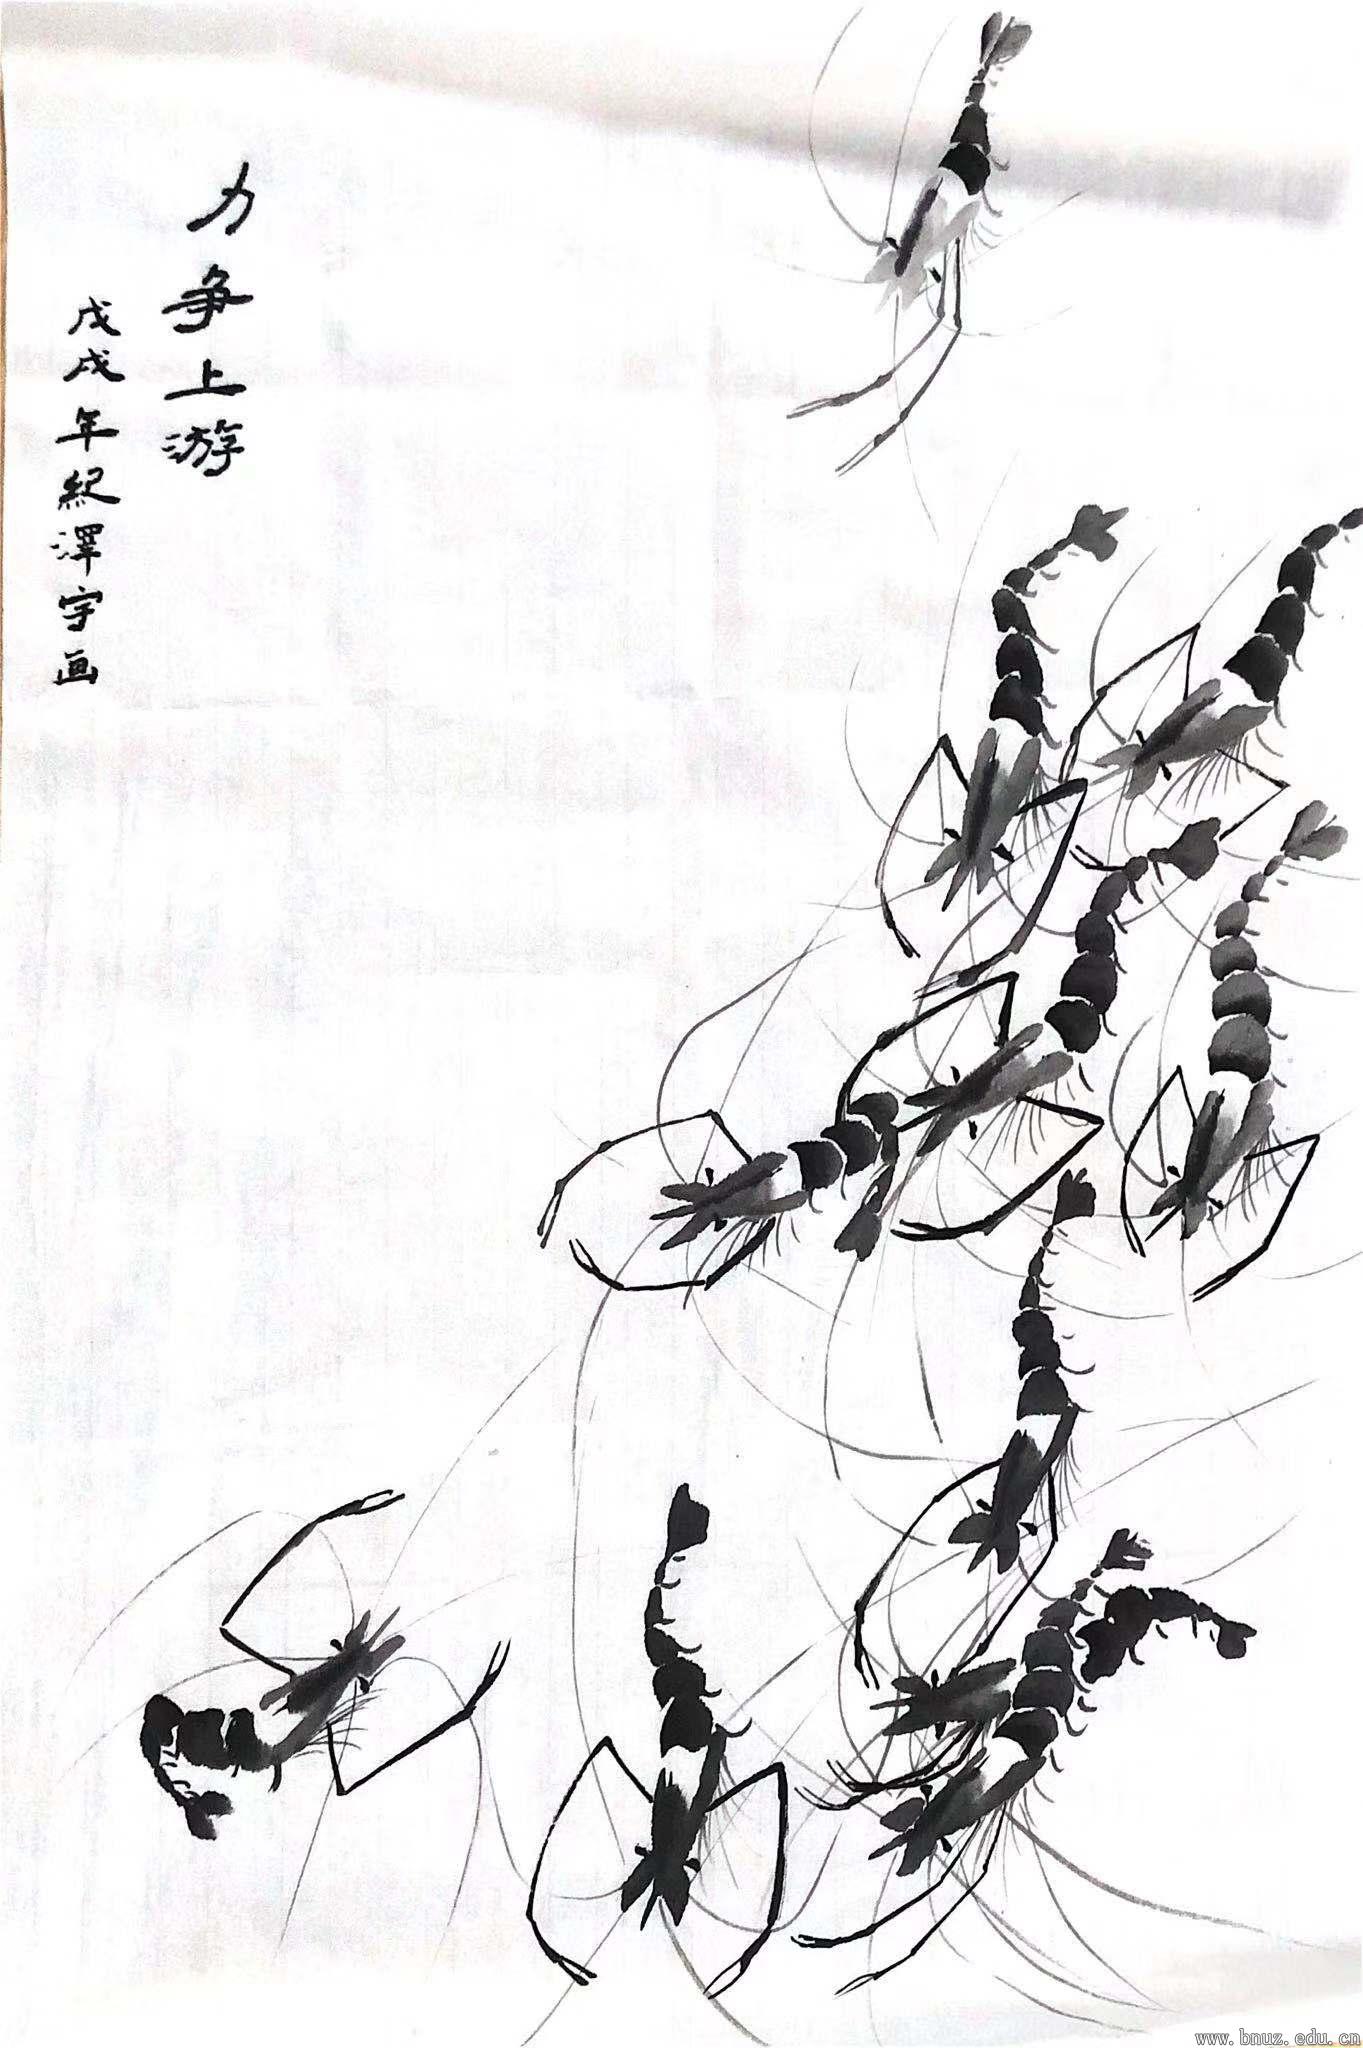 力争上游
戊戌年紀澤宇画
www.bnuz.edu.cn